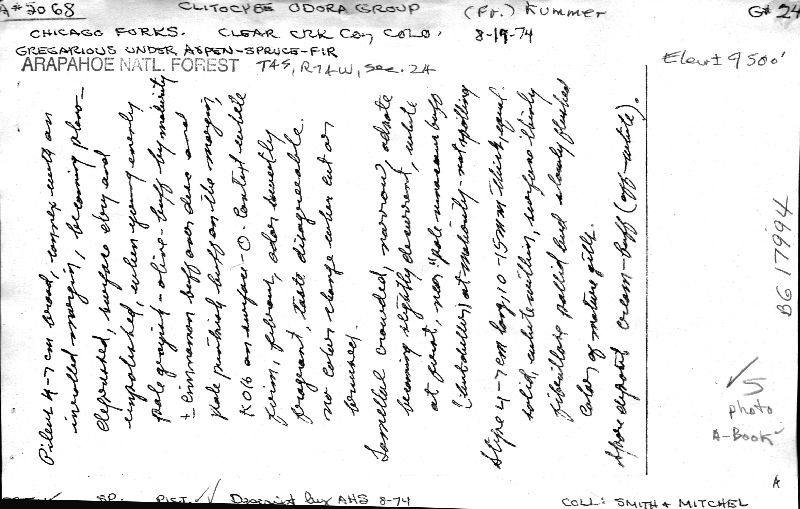 A#2068 CLITOCYBE ODORA GROUP (Fr.) Kummer G#24
CHICAGO FORKS. CLEAR CRK COY, COLO. 8-19-74
GREGARIOUS UNDER ASPEN-SPRUCE-FIR
ARAPAHOE NATL. FOREST T4S, R74W, Sec. 24 Elev ± 9500'
Pileus 4-7 cm broad, convex with an
inrolled margin, becoming plano-
depressed, surface dry and
unpolished, when young evenly
pale grayish-olive-buff by maturity
± cinnamon buff over disc and
pale pinkish buff on the margin,
KOH on surface -O- Context white
firm, fibrous, odor sweetly
fragrant, taste disagreeable.
no color change when cut or
bruised.
Lamellae crowded, narrow, adnate
becoming slightly decurrent, white
at first, near "pale vinaceous buff
(isabelline) at maturity - not spotting
Stipe 4-7 cm long, 10-15 mm thick, equal.
solid, white within, surface thinly
fibrillose pallid but slowly flushed
color of mature gills.
Spore deposit cream-buff (off-white).
BG 17994
✓5
photo
A-Book
A
SP. PICT. ✓✓ Descript by AHS 8-74 COLL: SMITH & MITCHEL